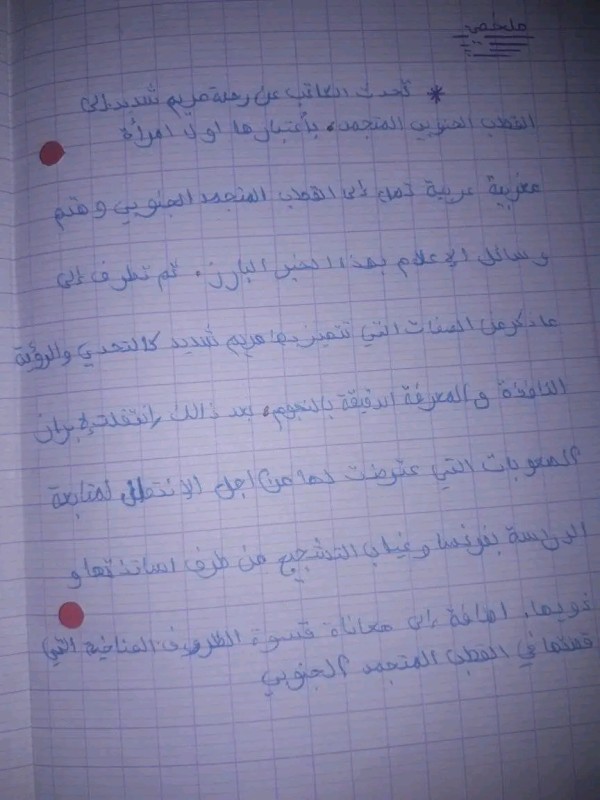 ملخص
* تحدث الكاتب عن رحلة مريم شديد إلى
القطب الجنوبي المتجمد، بأعتبارها اول امرأة
مغربية عربية تصل إلى القطب المتجمد الجنوبي و
وسائل الإعلام بهذا الخبر البارز. ثم تطرق إلى
ذكر الصفات التي تتميز بها مريم شديد كالتحدي والرؤية
النافذة و المعرفة الدقيقة بالنجوم، بعد ذالك إنتقلت لإبراز
الصعوبات التي عترضت لها من اجل الإنتقال لمتابعة
الدرسة بفرنسا وغياب التشجيع من طرف اساتذتها و
ذويها. اضافة إلى معاناة قسوة الظروف المناخية التي
في القطب المتجمد الجنوبي